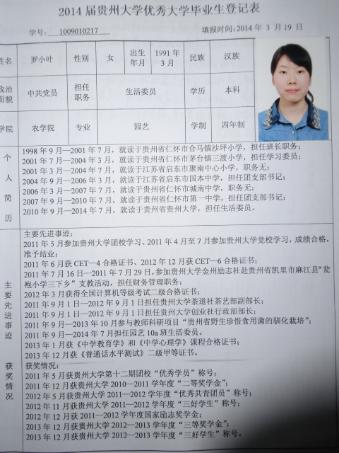 2014 届贵州大学优秀大学毕业生登记表
学号: 1009010217 填报时间: 2014 年 3 月 19 日
姓名 罗小叶 性别 女 出生年月 1991 年 3 月 民族 汉族
政治面貌 中共党员 担任职务 生活委员 学历 本科
学院 农学院 专业 园艺 学制 四年制
个人简历
1998 年 9 月—2001 年 7 月, 就读于贵州省仁怀市合马镇沙坪小学, 担任班长职务;
2001 年 9 月—2002 年 7 月, 就读于贵州省仁怀市茅台镇三渡小学, 担任学习委员;
2001 年 9 月—2004 年 7 月, 就读于江苏省启东市聚南中心小学, 职务无;
2004 年 9 月—2006 年 7 月, 就读于江苏省启东市国本中学, 担任团支部书记;
2006 年 9 月—2007 年 7 月, 就读于贵州省仁怀市城南中学, 职务无;
2007 年 9 月—2010 年 7 月, 就读于贵州省仁怀市第一中学, 担任团支部书记;
2010 年 9 月—2014 年 7 月, 就读于贵州省贵州大学, 担任生活委员。
主要先进事迹
主要先进事迹:
2011 年 5 月参加贵州大学团校学习、2011 年 4 月至 7 月参加贵州大学党校学习, 成绩合格,
准予结业;
2011 年 6 月获 CET—4 合格证书、2012 年 12 月获 CET—6 合格证书;
2011 年 7 月 16 日—2011 年 7 月 29 日, 参加贵州大学金州励志社赴贵州省凯里市麻江县"龙
袍小学三下乡"支教活动, 担任财务管理职务;
2012 年 3 月获得全国计算机等级考试二级合格证书;
2011 年 9 月 1 日—2012 年 9 月 1 日担任贵州大学茶道社茶艺部副部长;
2011 年 9 月 1 日—2012 年 9 月 1 日担任贵州大学创业社行政部部长;
2011 年 9 月—2013 年 10 月参与教师科研项目"贵州省野生珍惜食用菌的驯化栽培";
2011 年 9 月—2014 年 7 月担任园艺 10a 班生活委员;
2013 年 1 月获《中学教育学》和《中学心理学》课程合格证书;
2013 年 12 月获《普通话水平测试》二级甲等证书。
获奖情况
获奖情况:
2011 年 5 月获贵州大学第十二期团校"优秀学员"称号;
2011 年 12 月获贵州大学 2010—2011 学年度"二等奖学金";
2012 年 5 月获贵州大学 2011—2012 学年度"优秀共青团员"称号;
2012 年 11 月获贵州大学 2011—2012 学年度"三好学生"称号;
2012 年 12 月获 2011—2012 学年度国家励志奖学金;
2013 年 12 月获贵州大学 2012—2013 学年度"三等奖学金";
2013 年 12 月获贵州大学 2012—2013 学年度"三好学生"称号。